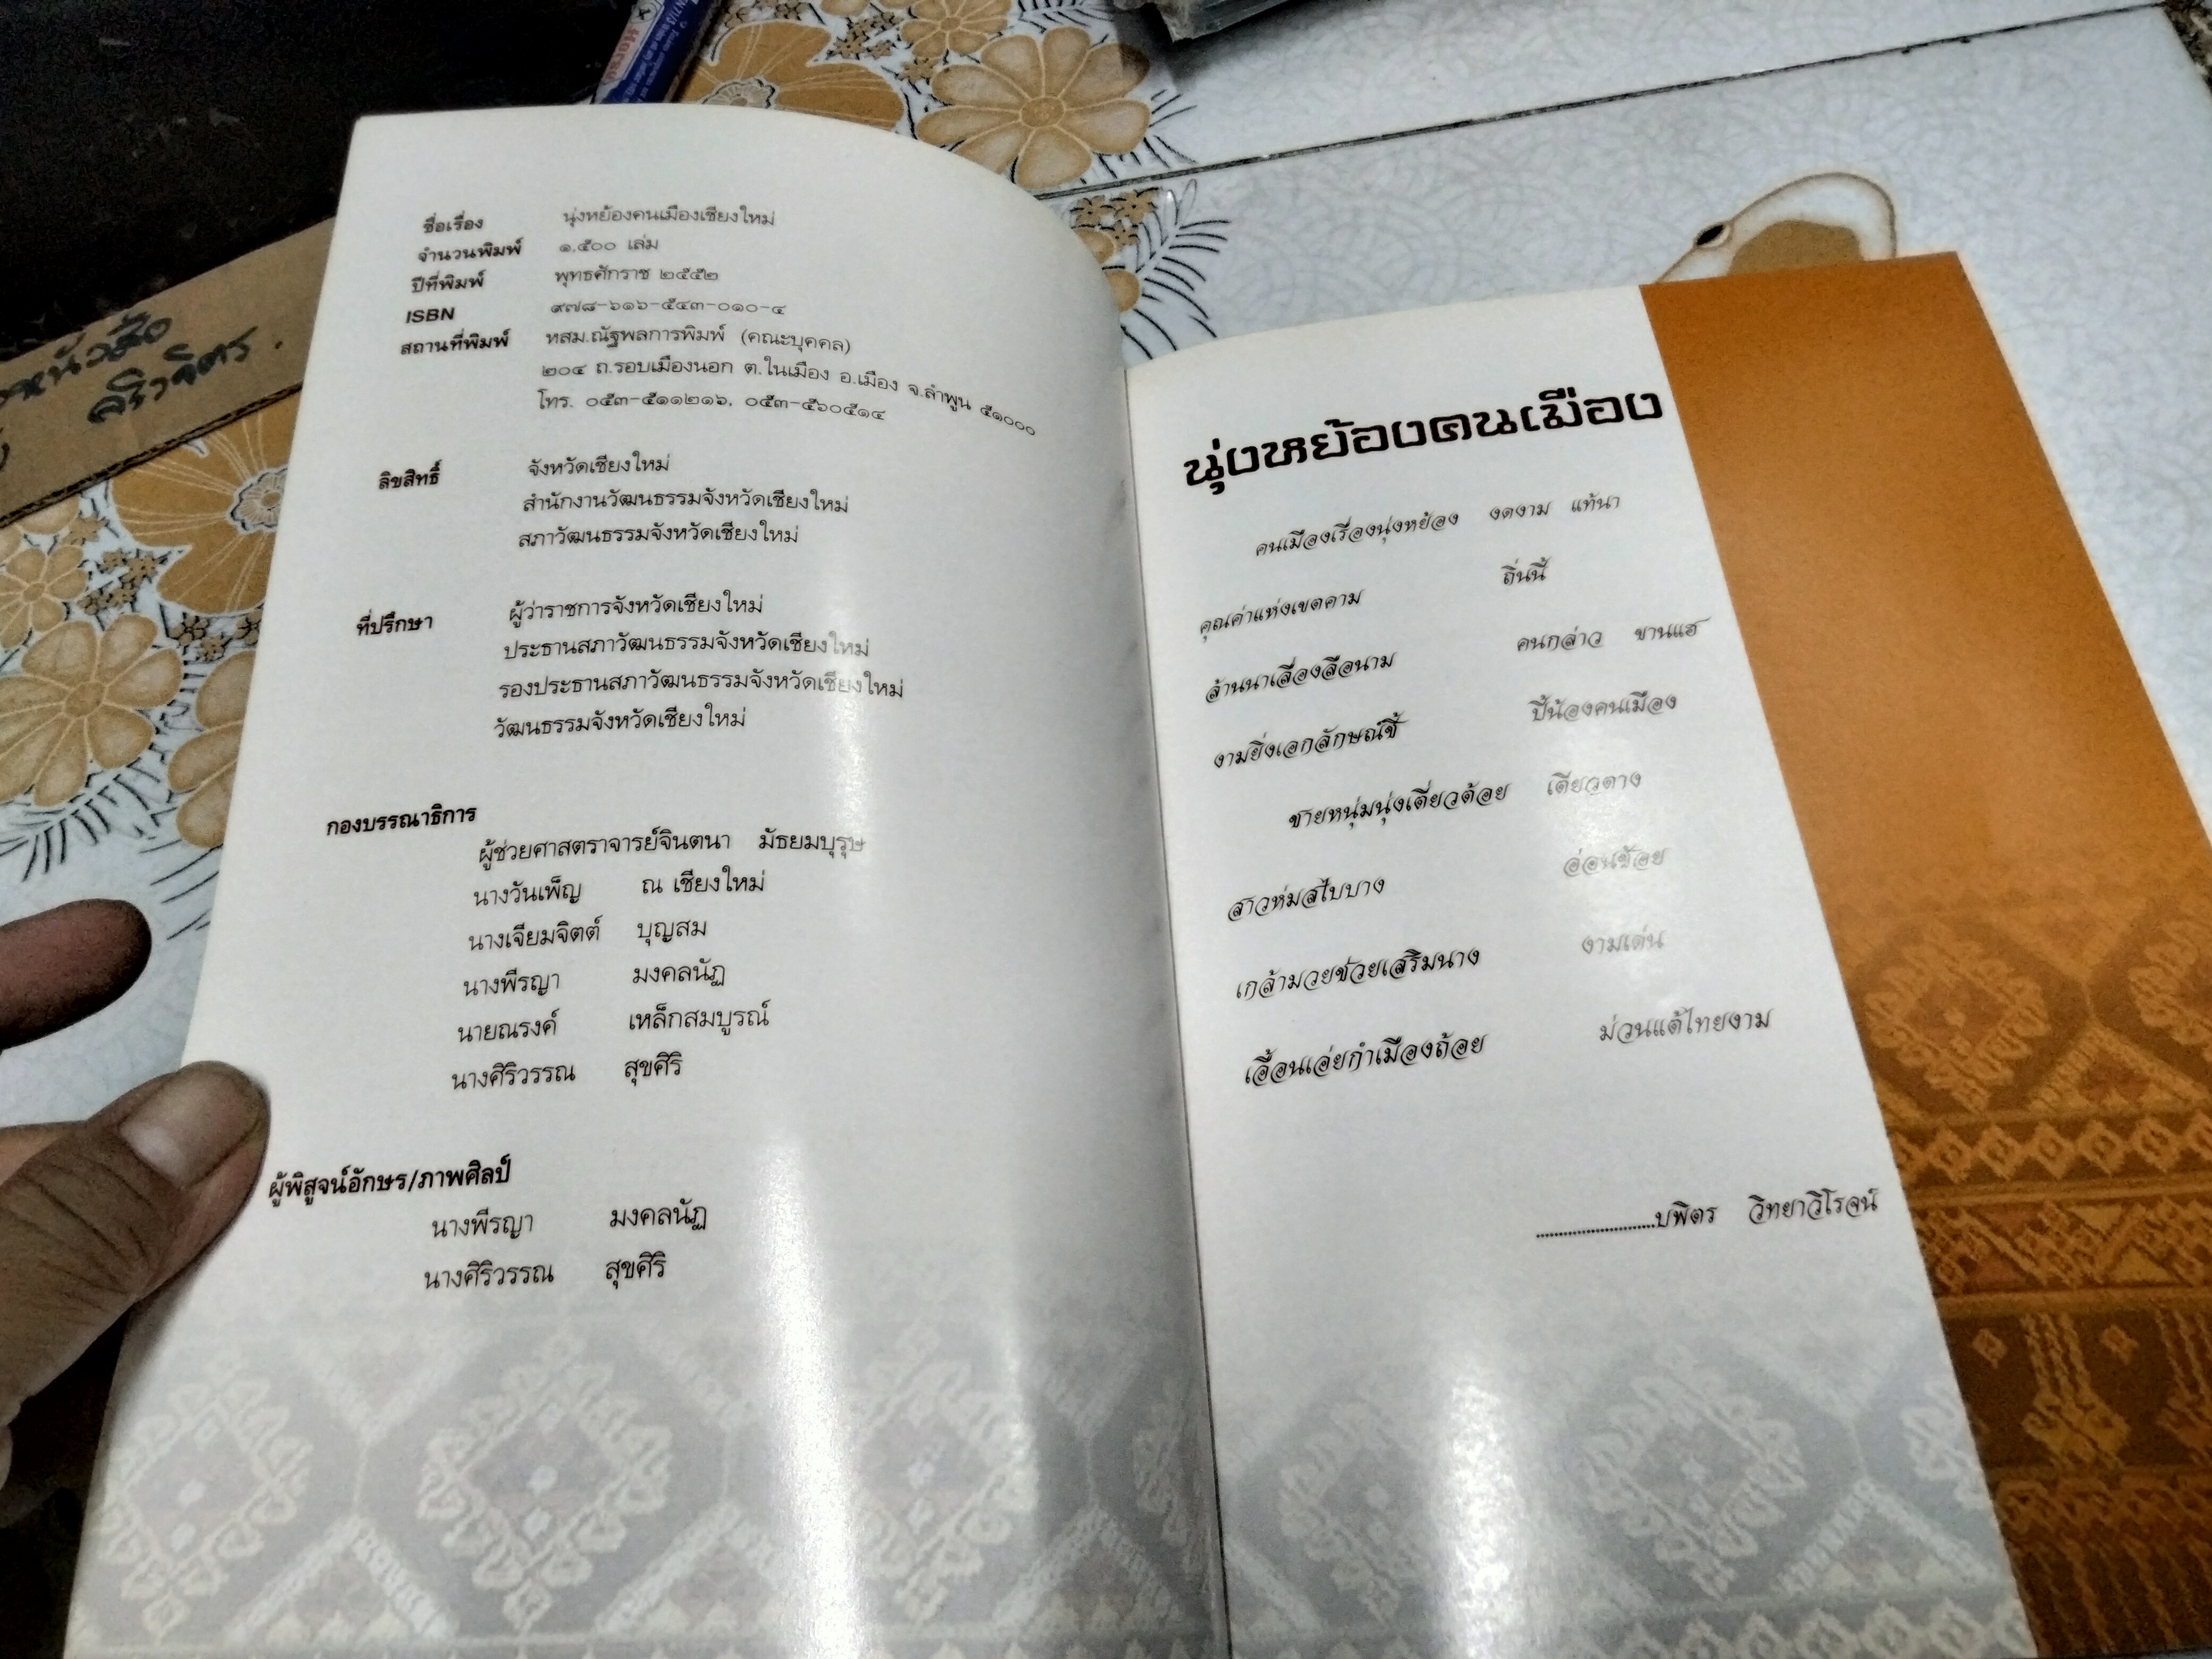 ชื่อเรื่อง นุ่งหย้องคนเมืองเชียงใหม่
จำนวนพิมพ์ ๑,๕๐๐ เล่ม
ปีที่พิมพ์ พุทธศักราช ๒๕๕๒
ISBN ๙๗๘-๖๑๖-๕๔๓-๐๑๐-๔
สถานที่พิมพ์ หสม.ณัฐพลการพิมพ์ (คณะบุคคล)
๒๐๔ ถ.รอบเมืองนอก ต.ในเมือง อ.เมือง จ.ลำพูน ๕๑๐๐๐
โทร. ๐๕๓-๕๑๑๒๑๖, ๐๕๓-๕๖๐๕๑๔
ลิขสิทธิ์ จังหวัดเชียงใหม่
สำนักงานวัฒนธรรมจังหวัดเชียงใหม่
สภาวัฒนธรรมจังหวัดเชียงใหม่
ที่ปรึกษา ผู้ว่าราชการจังหวัดเชียงใหม่
ประธานสภาวัฒนธรรมจังหวัดเชียงใหม่
รองประธานสภาวัฒนธรรมจังหวัดเชียงใหม่
วัฒนธรรมจังหวัดเชียงใหม่
กองบรรณาธิการ
ผู้ช่วยศาสตราจารย์จินตนา มัธยมบุรุษ
นางวันเพ็ญ ณ เชียงใหม่
นางเจียมจิตต์ บุญสม
นางพีรญา มงคลนัฏ
นายณรงค์ เหล็กสมบูรณ์
นางศิริวรรณ สุขศิริ
ผู้พิสูจน์อักษร/ภาพศิลป์
นางพีรญา มงคลนัฏ
นางศิริวรรณ สุขศิริ
นุ่งหย้องคนเมือง
คนเมืองเรื่องนุ่งหย้อง งดงาม แท้นา
คุณค่าแห่งเขตคาม ถิ่นนี้
ล้านนาเลื่องลือนาม คนกล่าว ขานแฮ
งามยิ่งเอกลักษณ์ชี้ ปี้น้องคนเมือง
ชายหนุ่มนุ่งเตี่ยวต้อย เตียวตาง
สาวห่มสไบบาง อ่อนช้อย
เกล้ามวยช่วยเสริมนาง งามเด่น
เอื้อนเอ่ยกำเมืองถ้อย ม่วนแต้ไทยงาม
..........................บพิตร วิทยาวิโรจน์